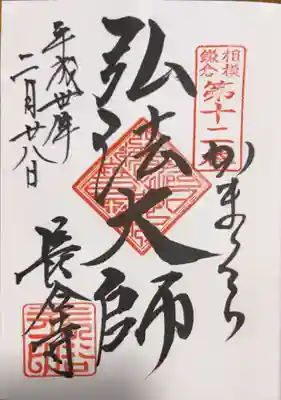 相模
鎌倉
第十二番
かまくら
弘法大師
平成丗年
二月廿八日
長谷寺